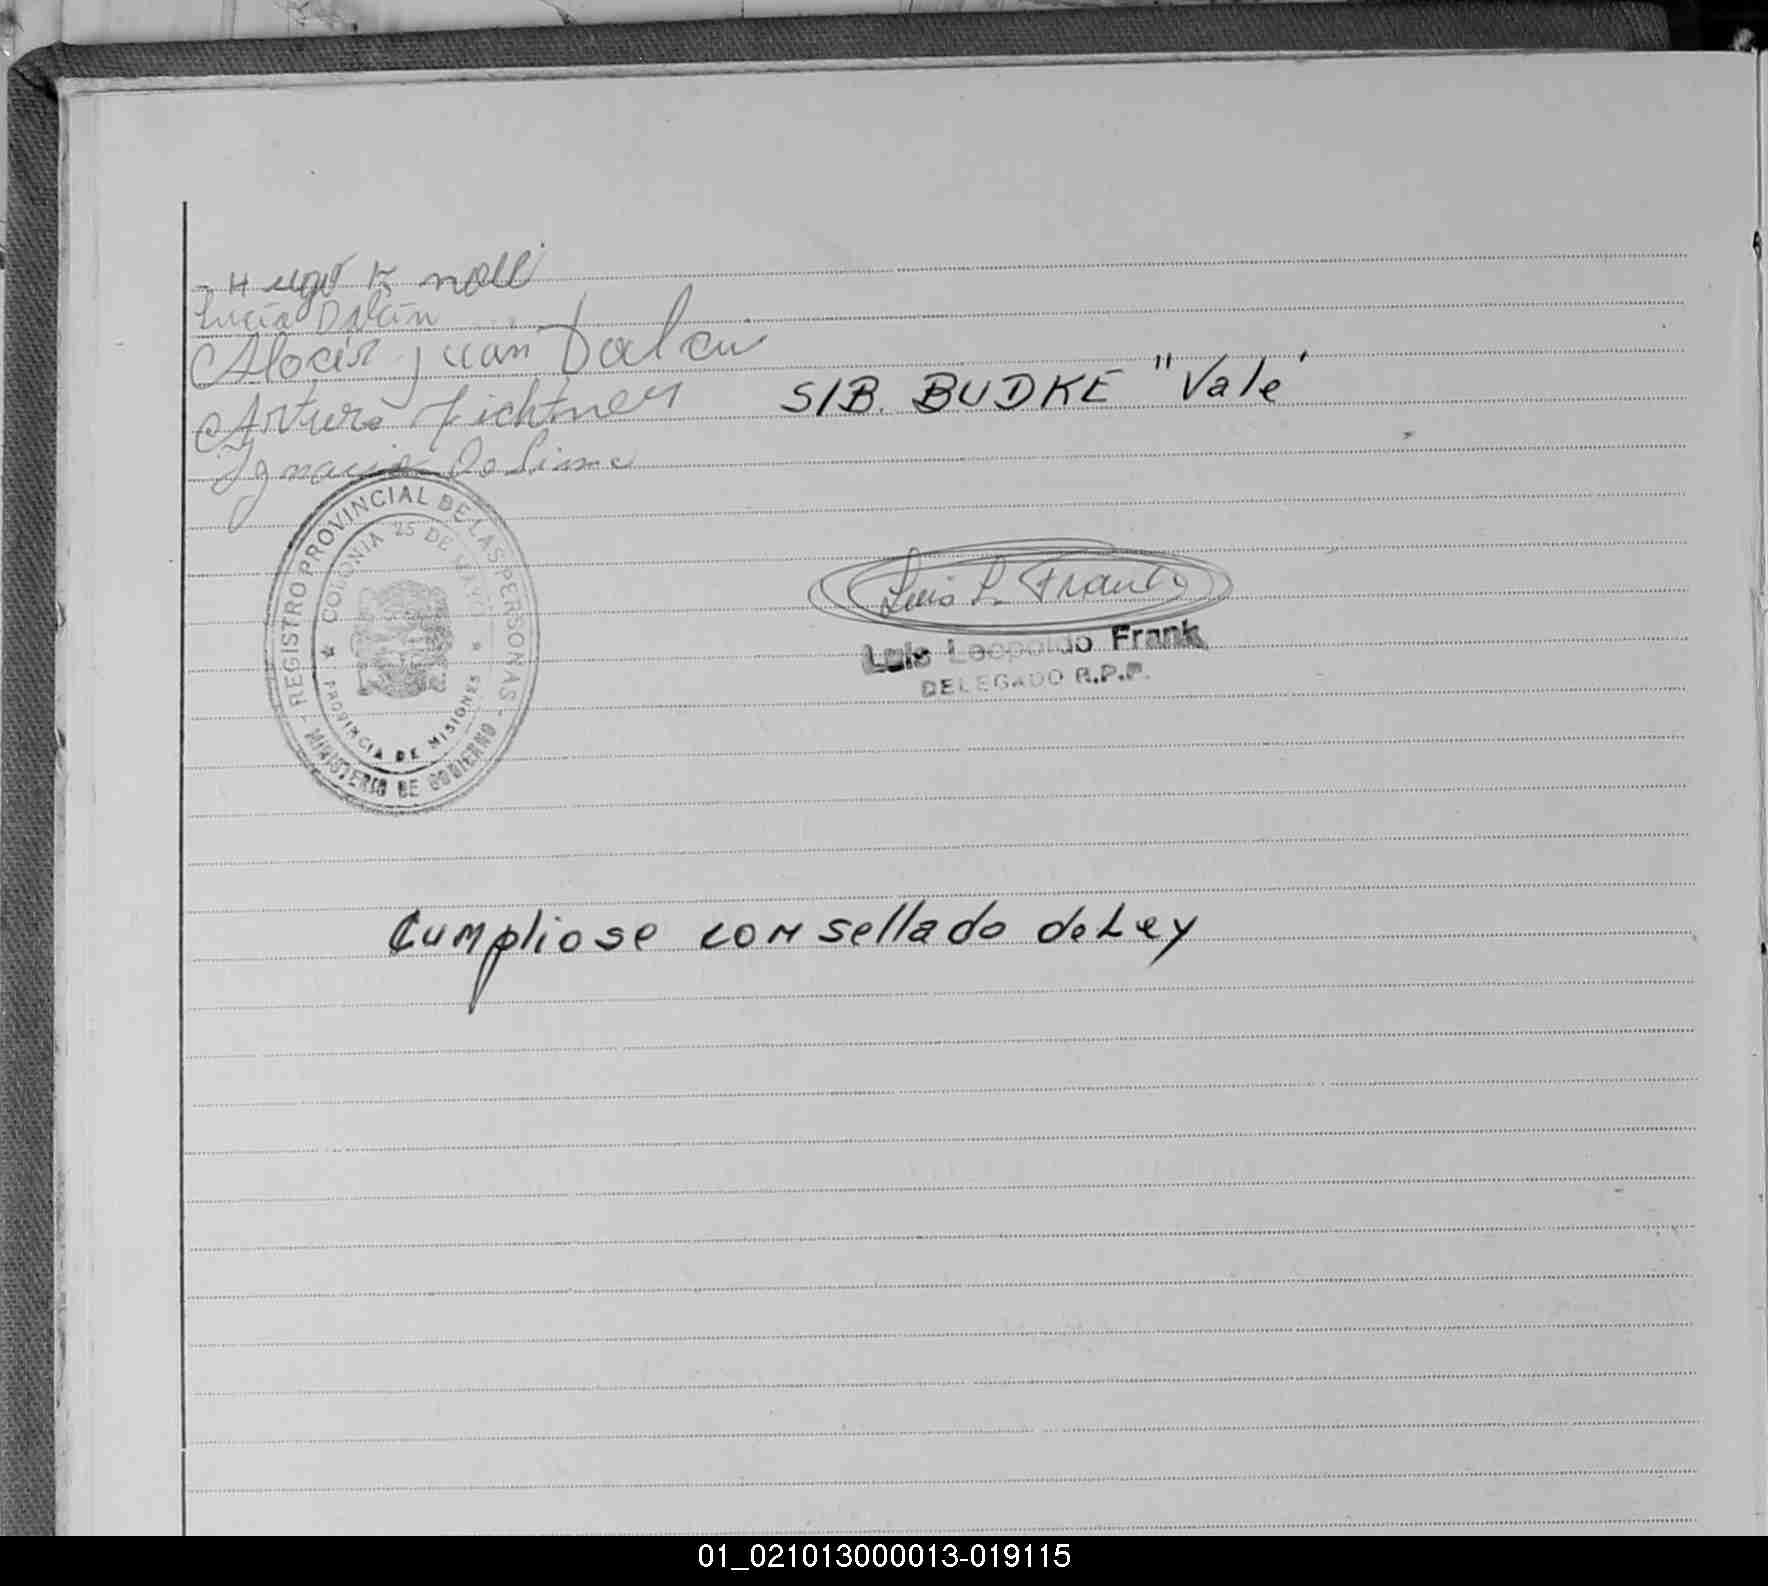 Hugo
Lucia Dalcin
Alocir Juan Dalcin
Arturo Fichtner
S/B. BUDKE "Vale"
Ignacio De Lima
REGISTRO PROVINCIAL DE LAS PERSONAS
COLONIA 25 DE MAYO
PROVINCIA DE MISIONES
MINISTERIO DE GOBIERNO
Luis L. Frank
Luis Leopoldo Frank
DELEGADO R.P.P.
Cumpliose con sellado de Ley
01_021013000013-019115